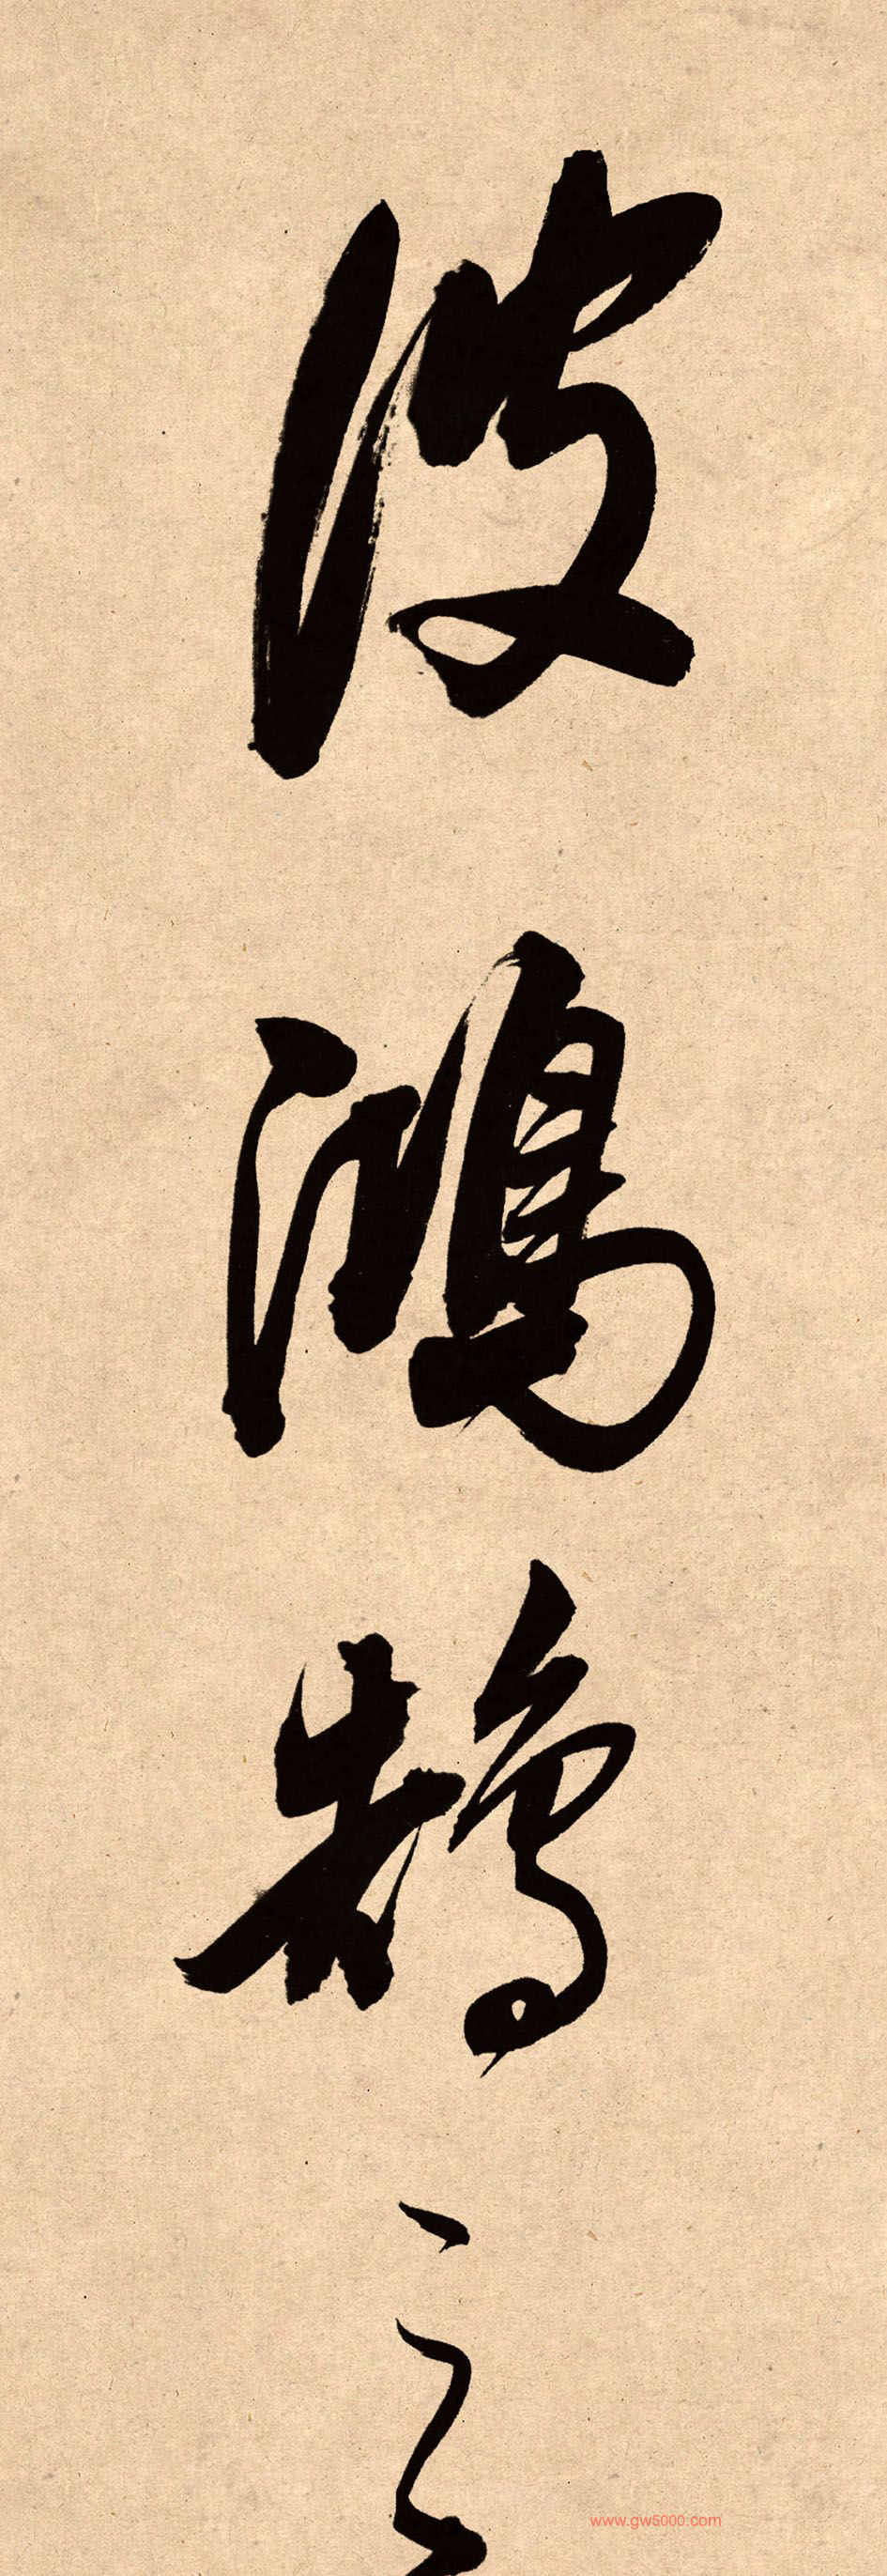 彼鴻鵠之
www.gw5000.com